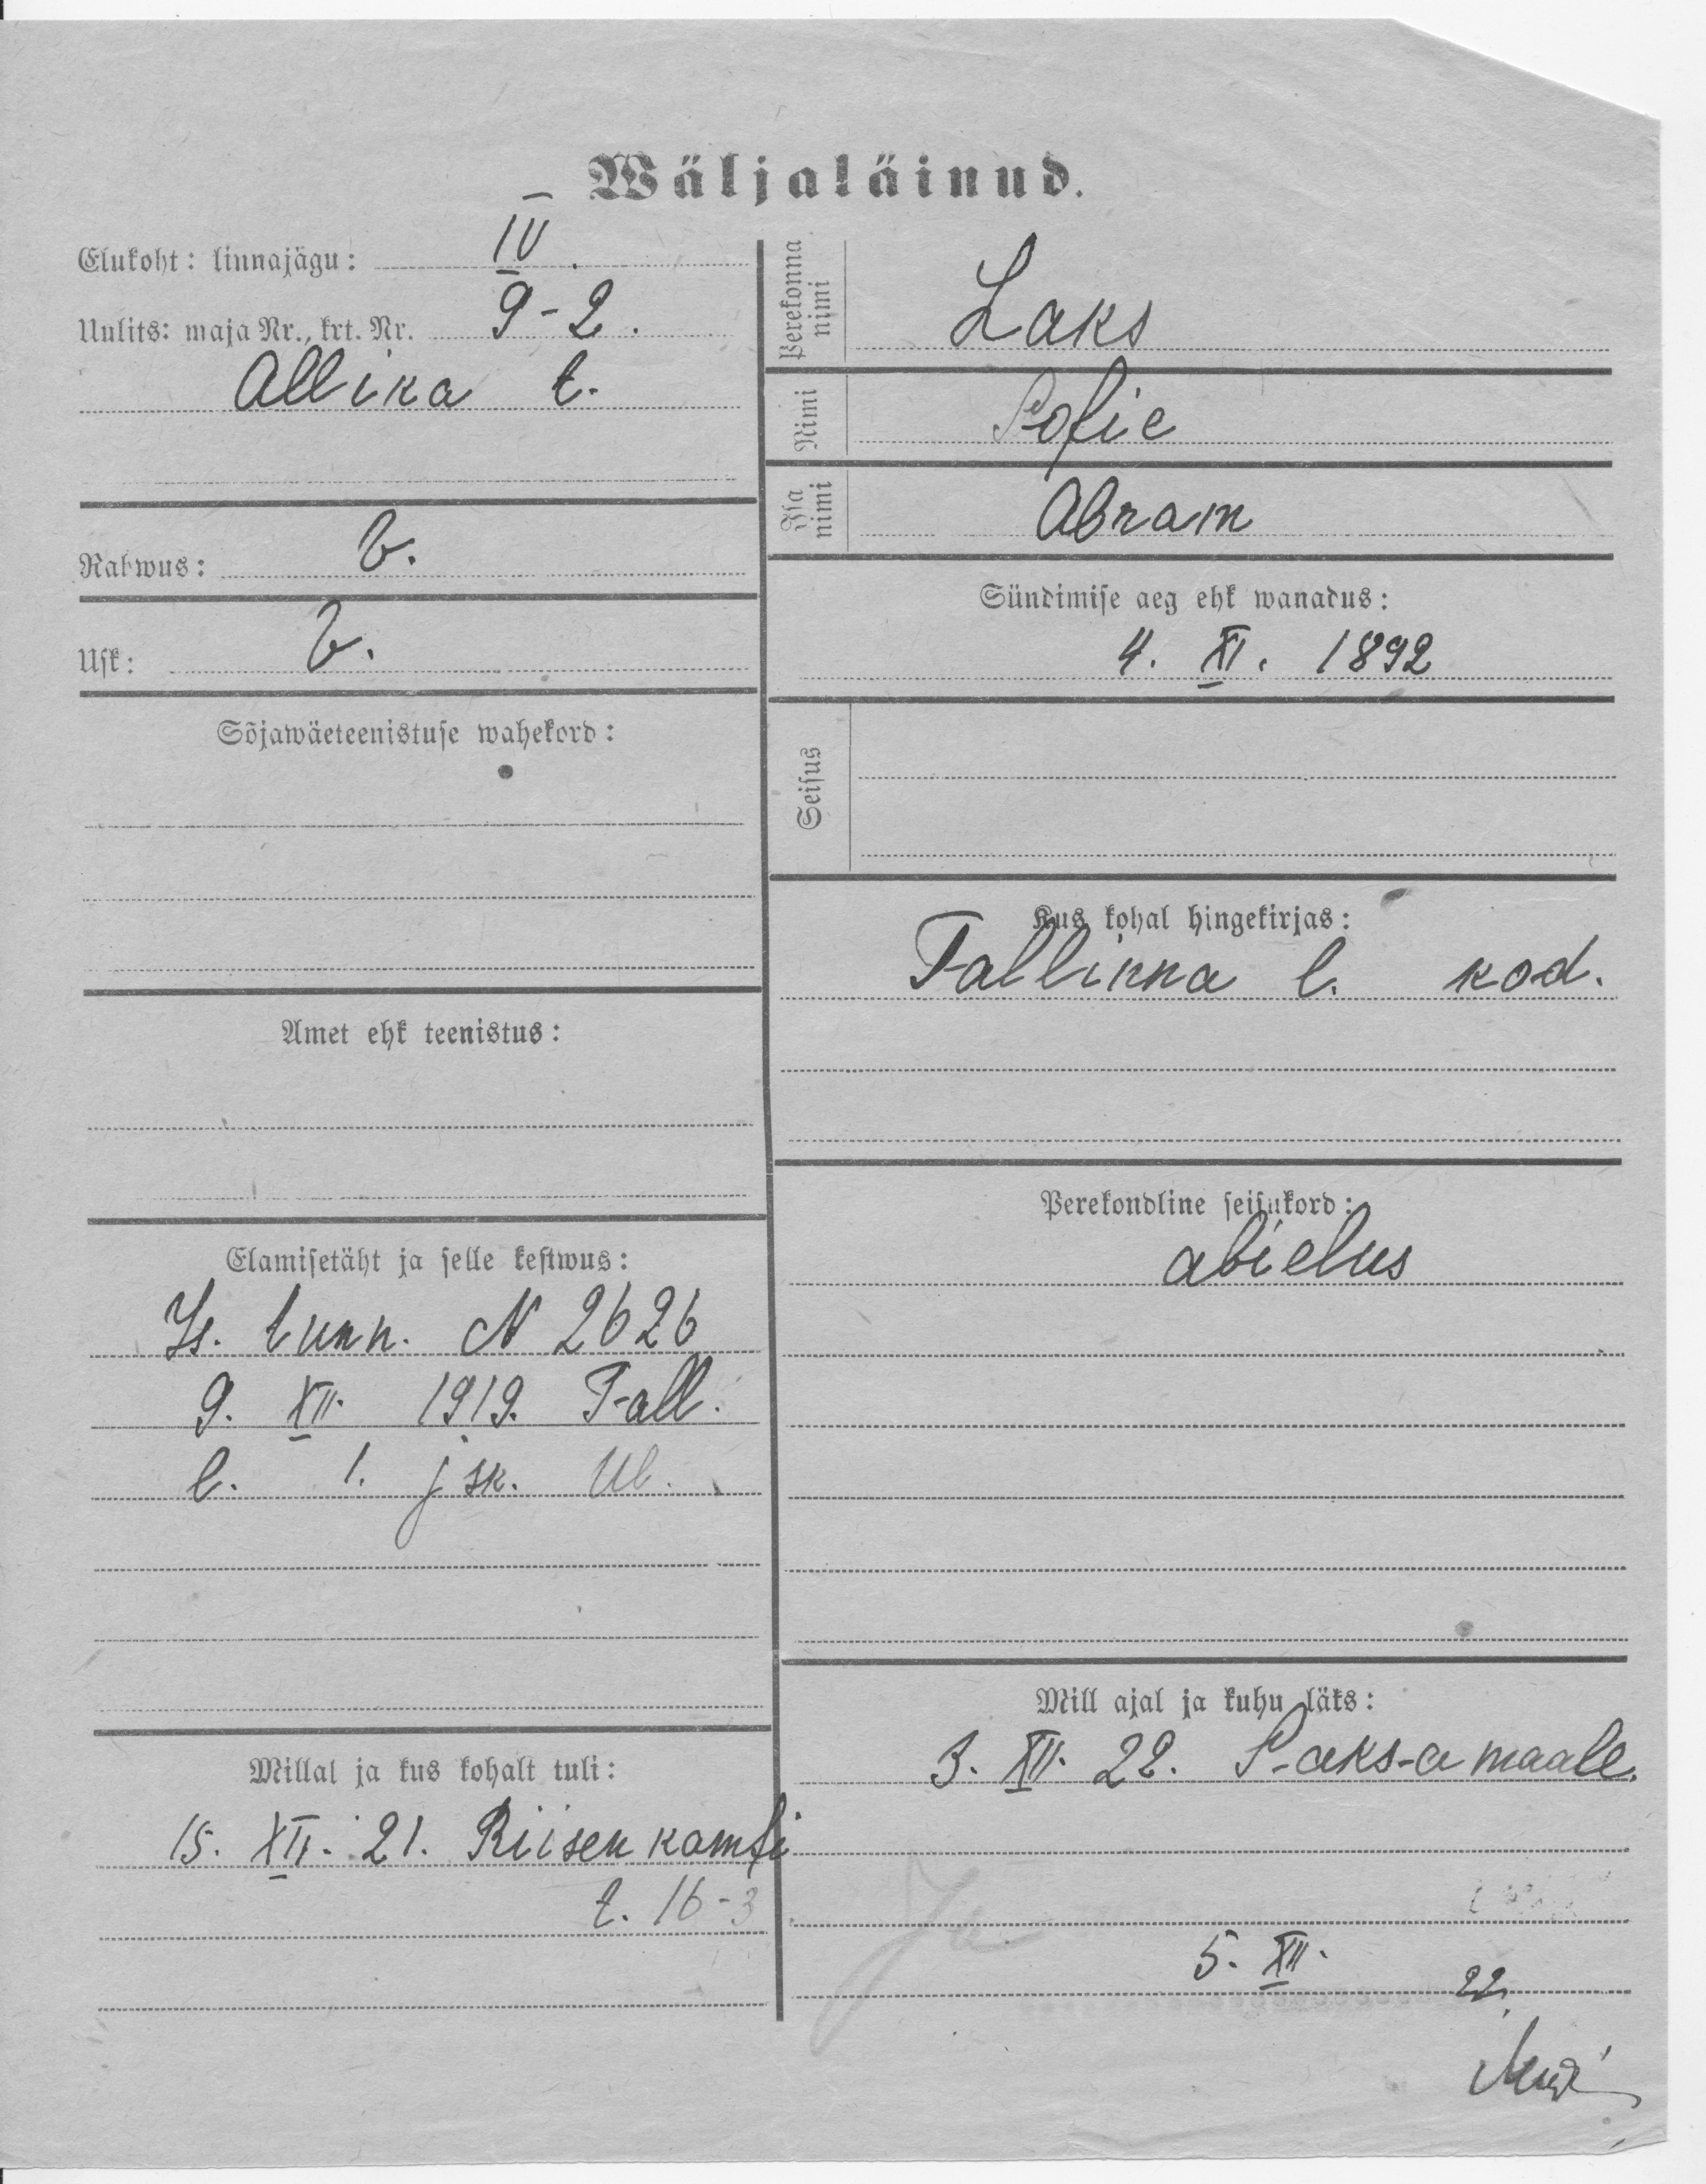 Wäljaläinud.
Elukoht: linnajägu: IV.
Uulits: maja Nr., krt. Nr. 9-2.
Allika t.
Rahwus: b.
Usk: b.
Sõjawäeteenistuse wahekord:
Amet ehk teenistus:
Elamisetäht ja selle kestwus:
Is. tunn. N 2626
9. XII. 1919. Tall.
l. 1. jsk. Ül.
Millal ja kus kohalt tuli:
15. XII. 21. Riisenkamfi
t. 16-3
Perekonna nimi
Laks
Nimi
Sofie
Isa nimi
Abram
Sündimise aeg ehk wanadus:
4. XI. 1892
Seisus
Kus kohal hingekirjas:
Tallinna l. kod.
Perekondline seisukord:
abielus
Mill ajal ja kuhu läks:
3. XII. 22. Saksamaale.
5. XII. 22.